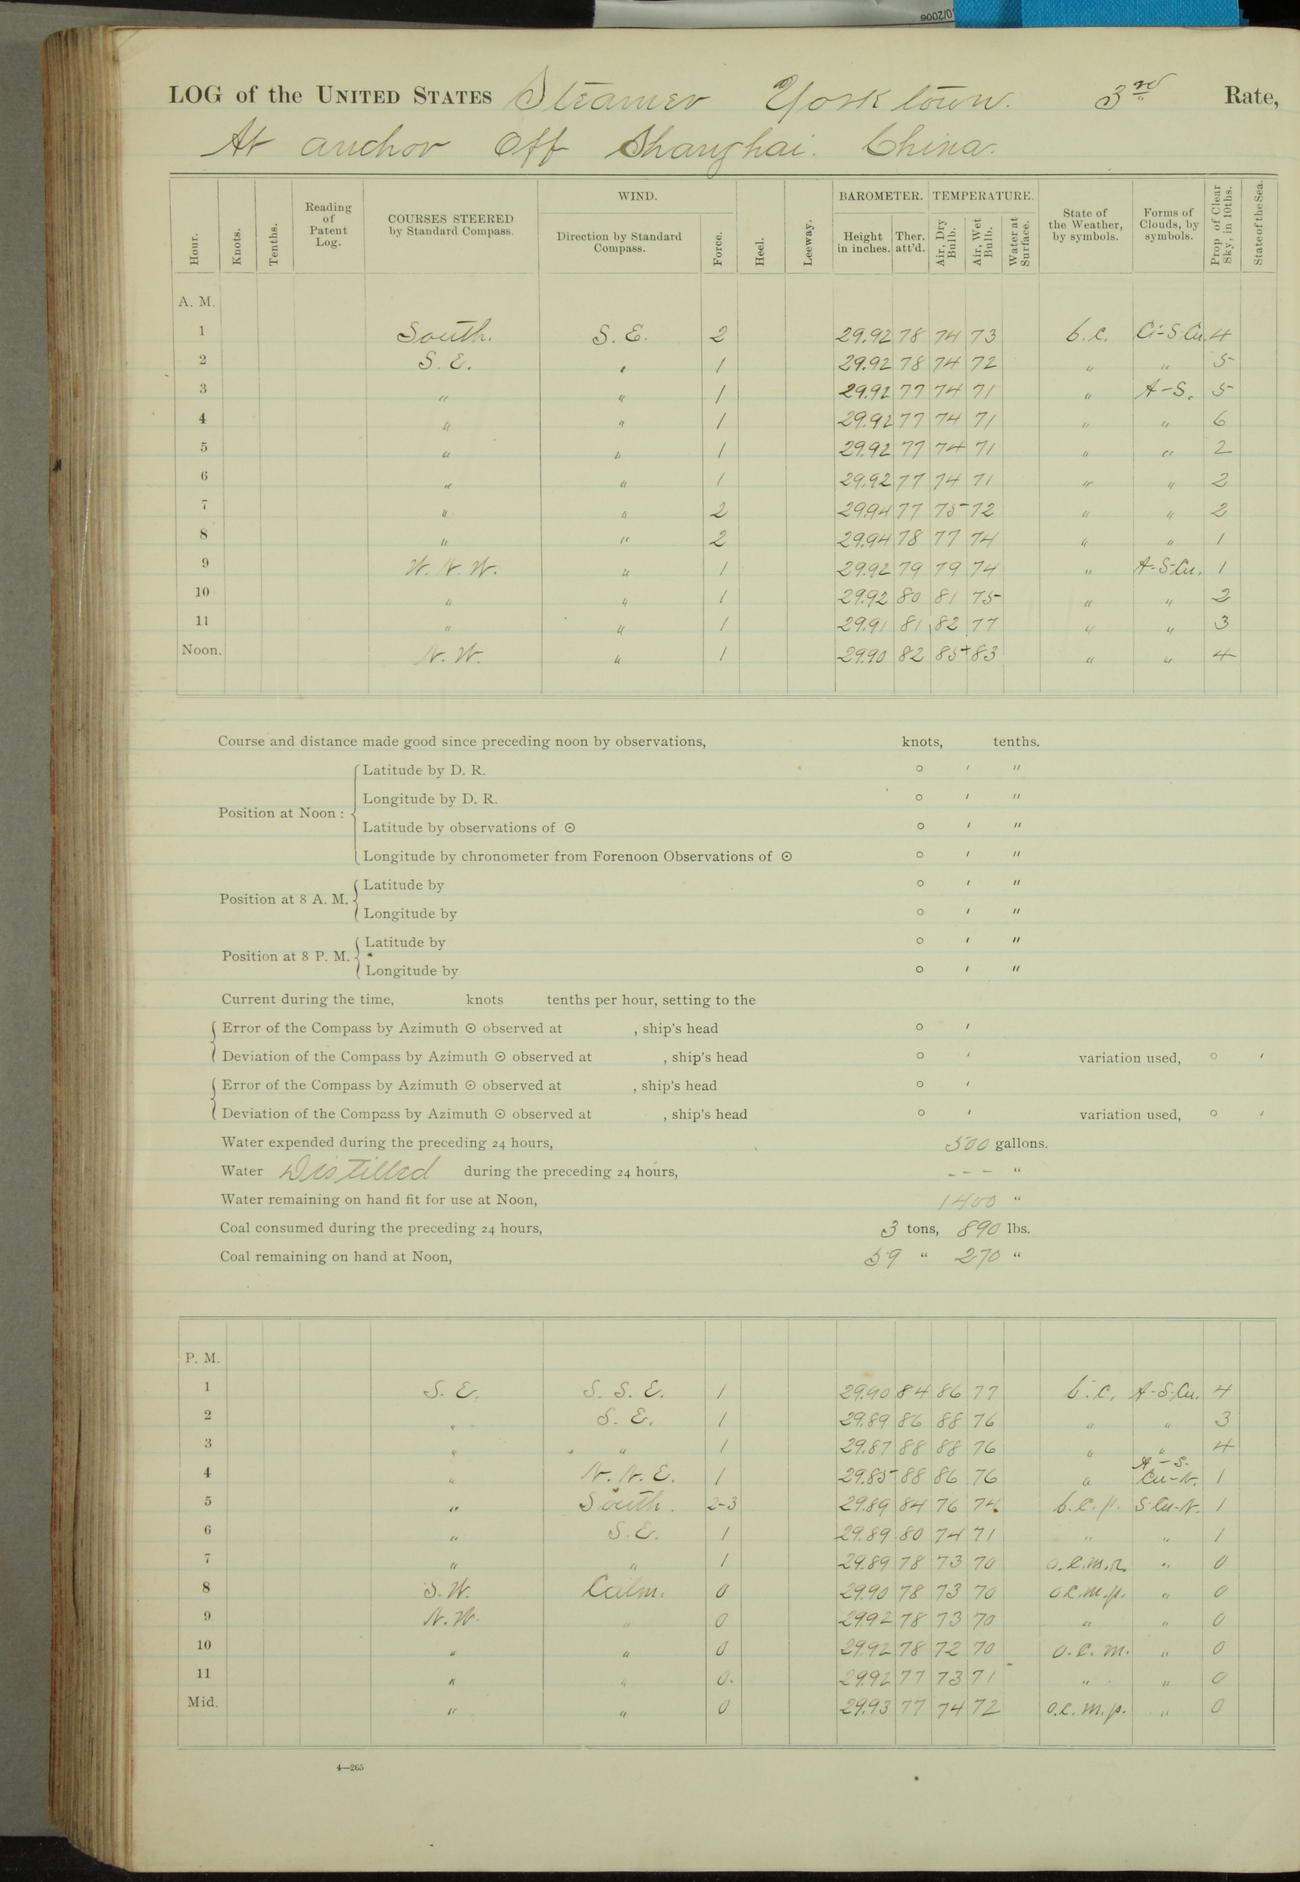 0/2006
LOG of the UNITED STATES Steamer Yorktown. 3rd Rate,
At anchor off Shanghai. China.
Hour. Knots. Tenths. Reading of Patent Log. COURSES STEERED by Standard Compass. WIND. Direction by Standard Compass. Force. Heel. Leeway. BAROMETER. Height in inches. Ther. att'd. TEMPERATURE. Air, Dry Bulb. Air, Wet Bulb. Water at Surface. State of the Weather, by symbols. Forms of Clouds, by symbols. Prop. of Clear Sky, in 10ths. State of the Sea.
A. M.
1 South. S. E. 2 29.92 78 74 73 b.c. Ci-S-Cu. 4
2 S. E. " 1 29.92 78 74 72 " " 5
3 " " 1 29.92 77 74 71 " A-S. 5
4 " " 1 29.92 77 74 71 " " 6
5 " " 1 29.92 77 74 71 " " 2
6 " " 1 29.92 77 74 71 " " 2
7 " " 2 29.94 77 75 72 " " 2
8 " " 2 29.94 78 77 74 " " 1
9 W. N. W. " 1 29.92 79 79 74 " A-S-Cu. 1
10 " " 1 29.92 80 81 75 " " 2
11 " " 1 29.91 81 82 77 " " 3
Noon. N. W. " 1 29.90 82 85 83 " " 4
Course and distance made good since preceding noon by observations, knots, tenths.
Position at Noon : Latitude by D. R. ° ′ ″
Longitude by D. R. ° ′ ″
Latitude by observations of ☉ ° ′ ″
Longitude by chronometer from Forenoon Observations of ☉ ° ′ ″
Position at 8 A. M. Latitude by ° ′ ″
Longitude by ° ′ ″
Position at 8 P. M. Latitude by ° ′ ″
Longitude by ° ′ ″
Current during the time, knots tenths per hour, setting to the
Error of the Compass by Azimuth ☉ observed at , ship's head ° ′
Deviation of the Compass by Azimuth ☉ observed at , ship's head ° ′ variation used, ° ′
Error of the Compass by Azimuth ☉ observed at , ship's head ° ′
Deviation of the Compass by Azimuth ☉ observed at , ship's head ° ′ variation used, ° ′
Water expended during the preceding 24 hours, 500 gallons.
Water Distilled during the preceding 24 hours, - - - "
Water remaining on hand fit for use at Noon, 1400 "
Coal consumed during the preceding 24 hours, 3 tons, 890 lbs.
Coal remaining on hand at Noon, 59 " 270 "
P. M.
1 S. E. S. S. E. 1 29.90 84 86 77 b.c. A-S-Cu. 4
2 " S. E. 1 29.89 86 88 76 " " 3
3 " " 1 29.87 88 88 76 " " 4
4 " N. N. E. 1 29.85 88 86 76 " A-S. Cu-N. 1
5 " South. 2-3 29.89 84 76 74 b.c.p. S-Cu-N. 1
6 " S. E. 1 29.89 80 74 71 " " 1
7 " " 1 29.89 78 73 70 o.c.m.r. " 0
8 S. W. Calm. 0 29.90 78 73 70 o.c.m.p. " 0
9 N. W. " 0 29.92 78 73 70 " " 0
10 " " 0 29.92 78 72 70 o.c.m. " 0
11 " " 0. 29.92 77 73 71 " " 0
Mid. " " 0 29.93 77 74 72 o.c.m.p. " 0
4—265